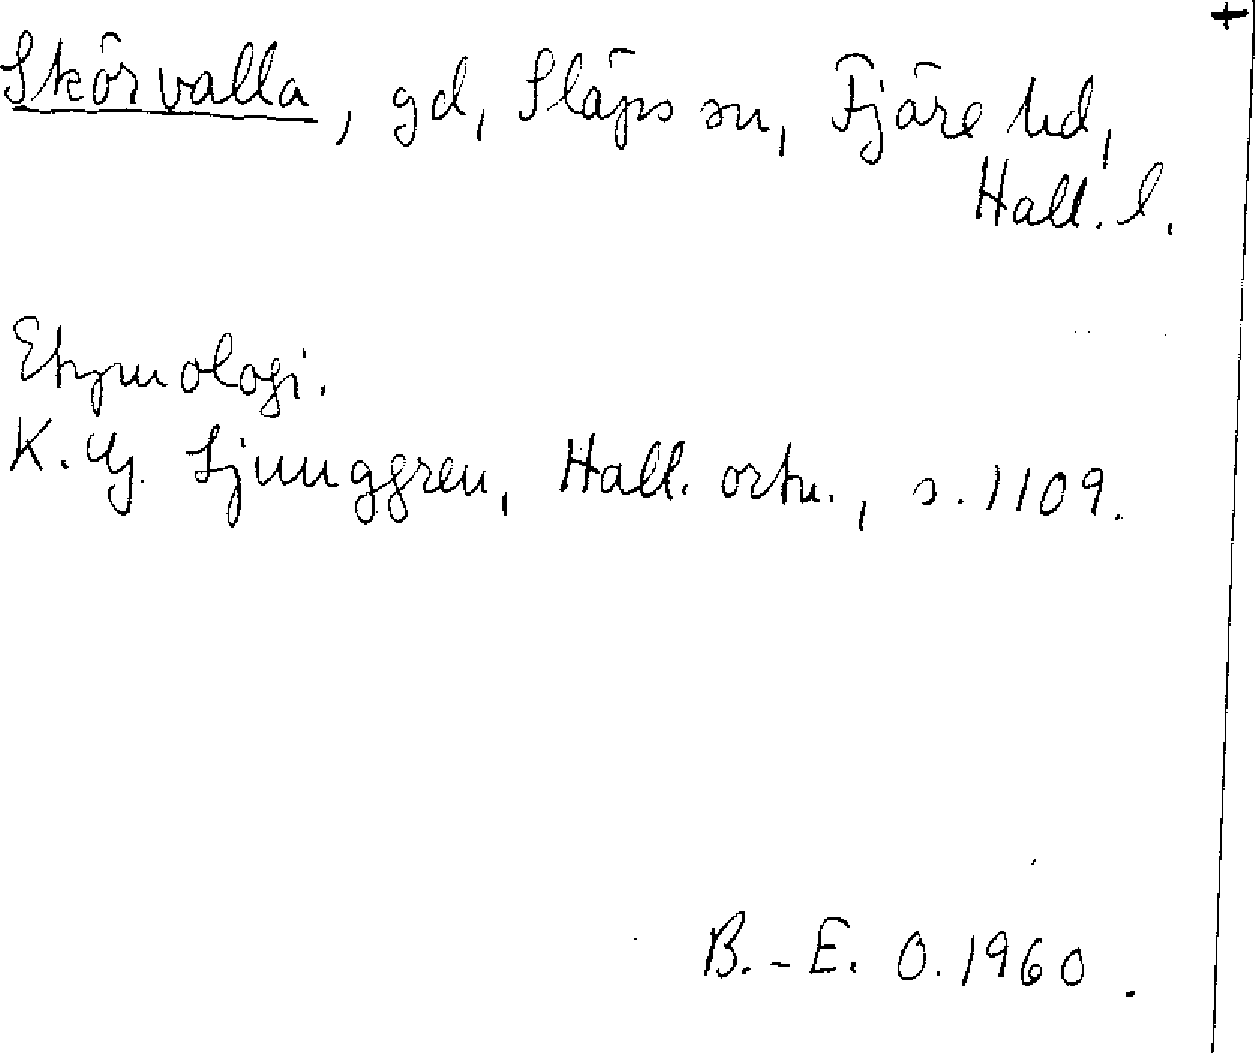 Skörvalla, gd, Släps sn, Fjäre hd,
Hall. l.
Etymologi.
K. G. Ljunggren, Hall. ortn., s. 1109.
B.-E. O. 1960.